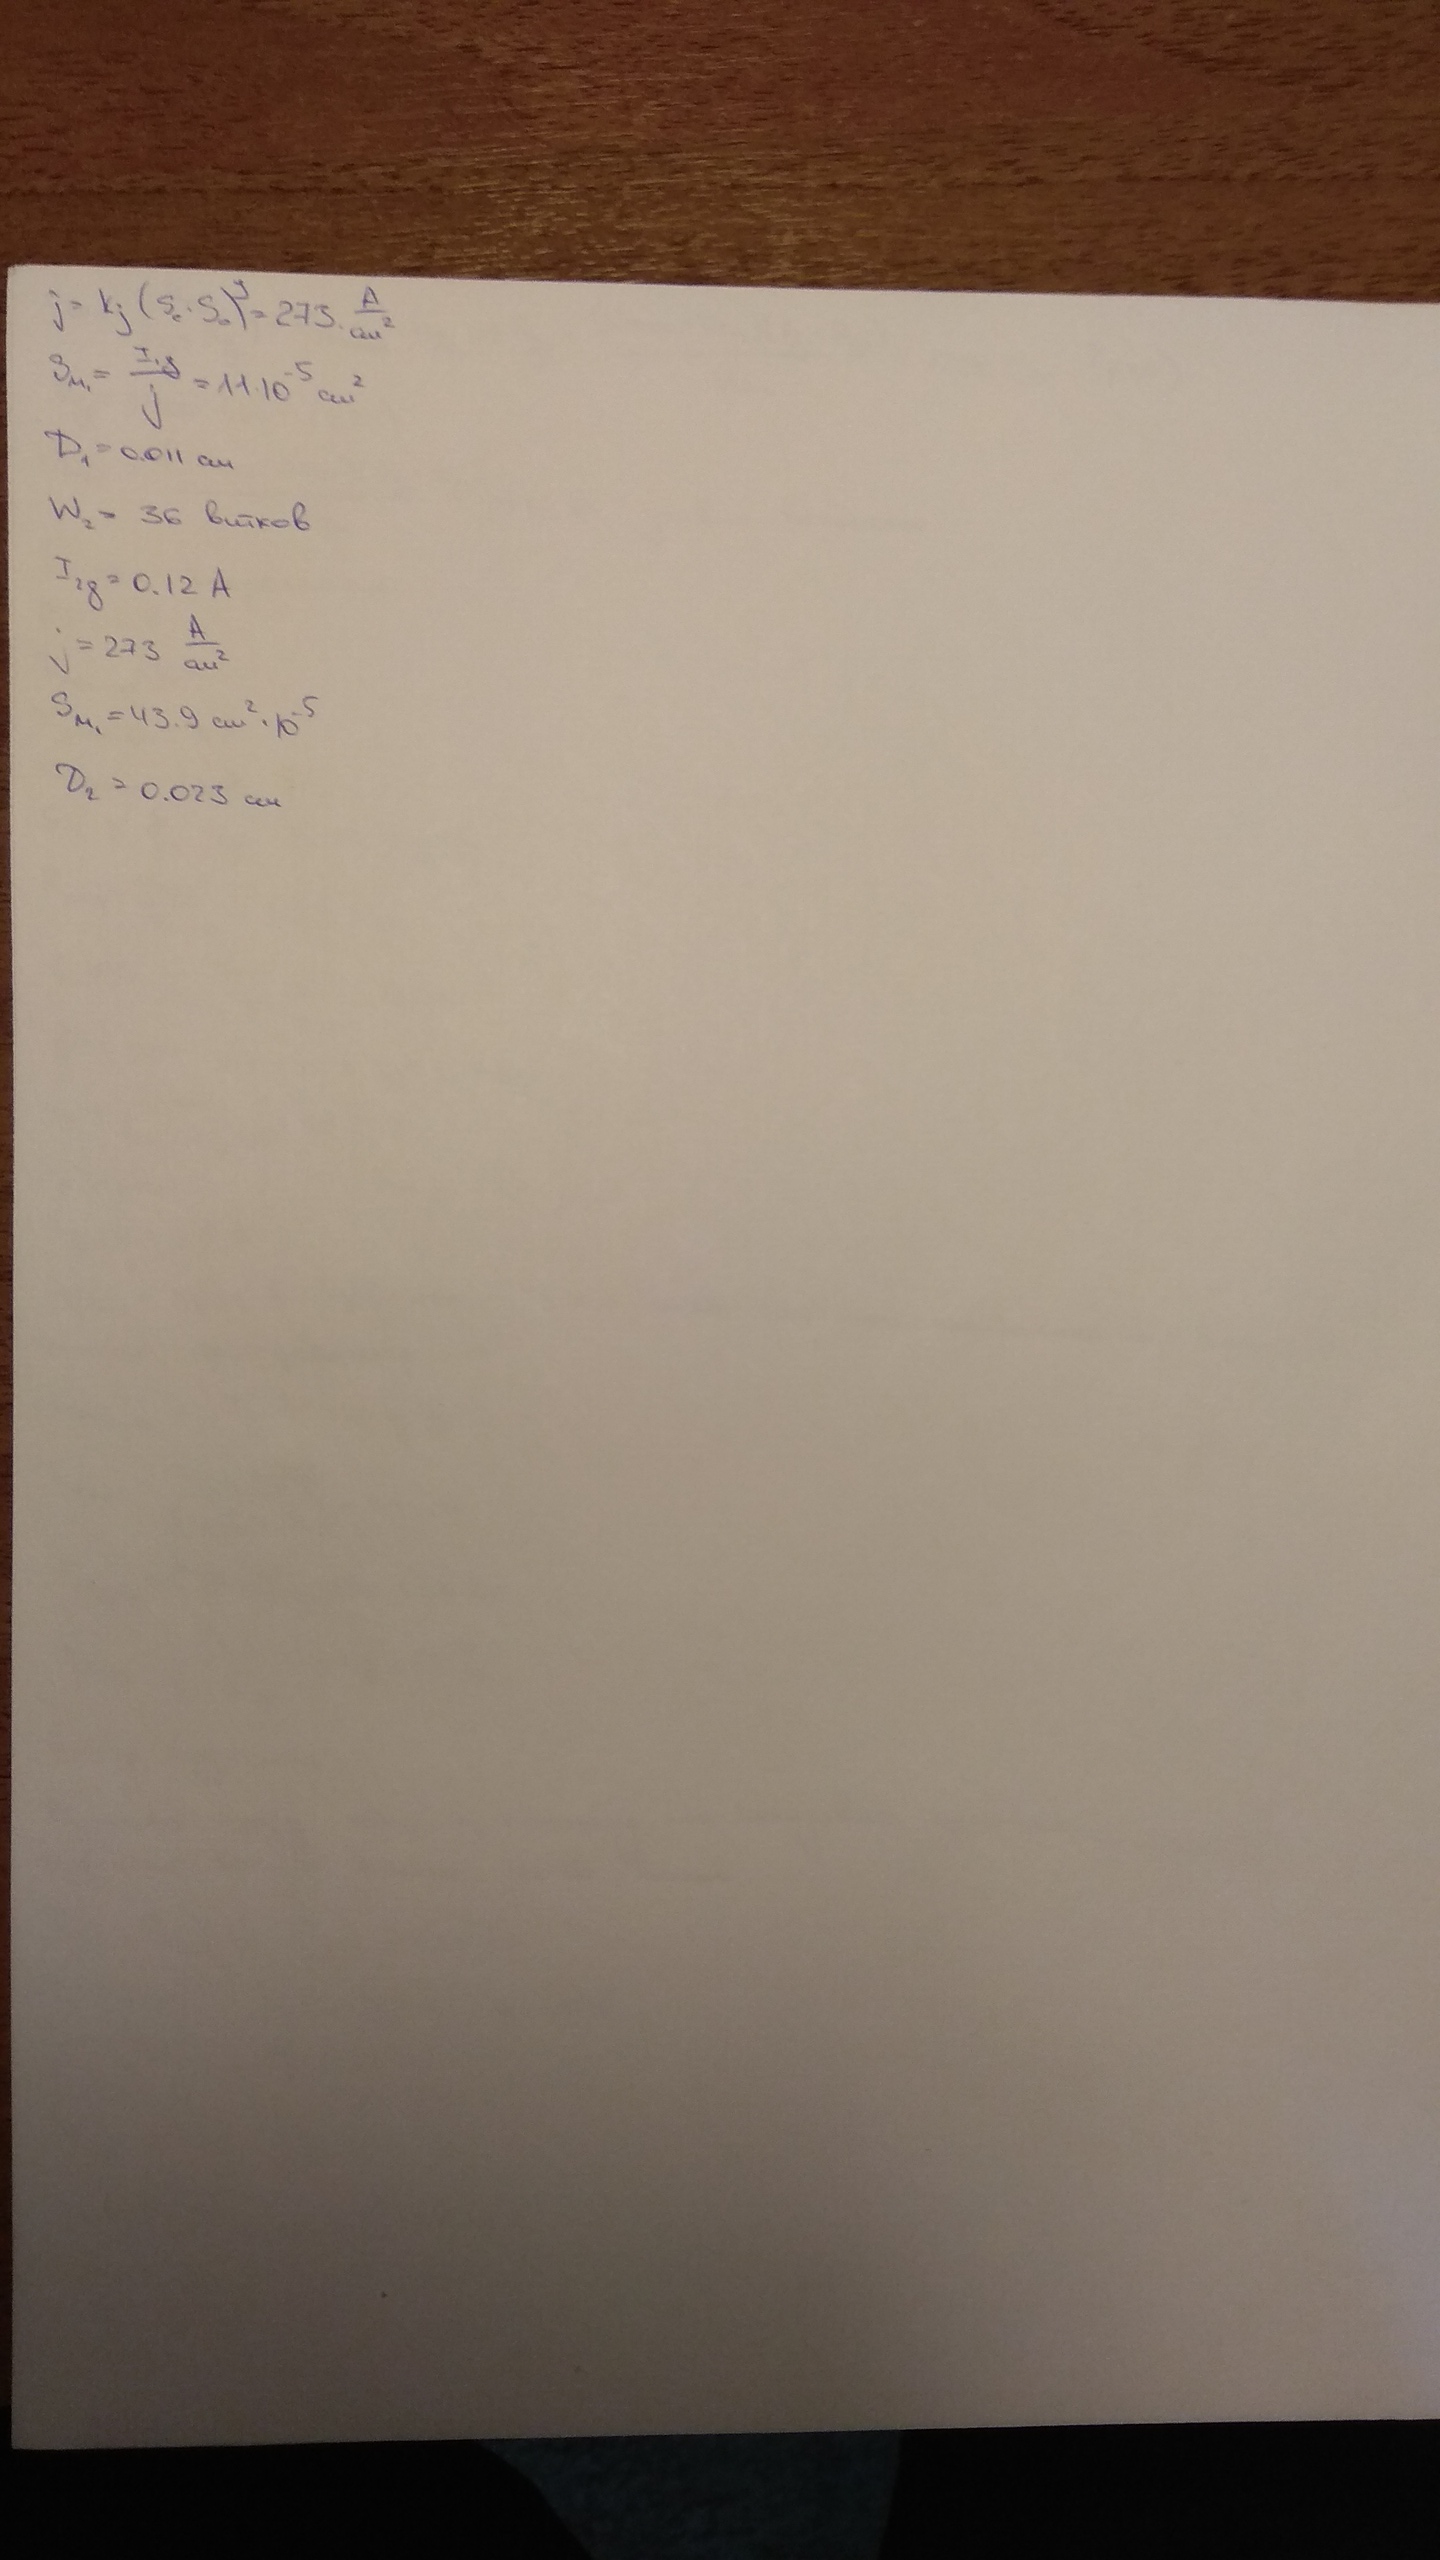 j = kj (Sc · So)^y = 273 · A/см²
Sм₁ = I₁д/j = 11·10⁻⁵ см²
D₁ = 0.011 см
W₂ = 36 витков
I₂д = 0.12 A
j = 273 A/см²
Sм₁ = 43.9 см² · 10⁻⁵
D₂ = 0.023 см